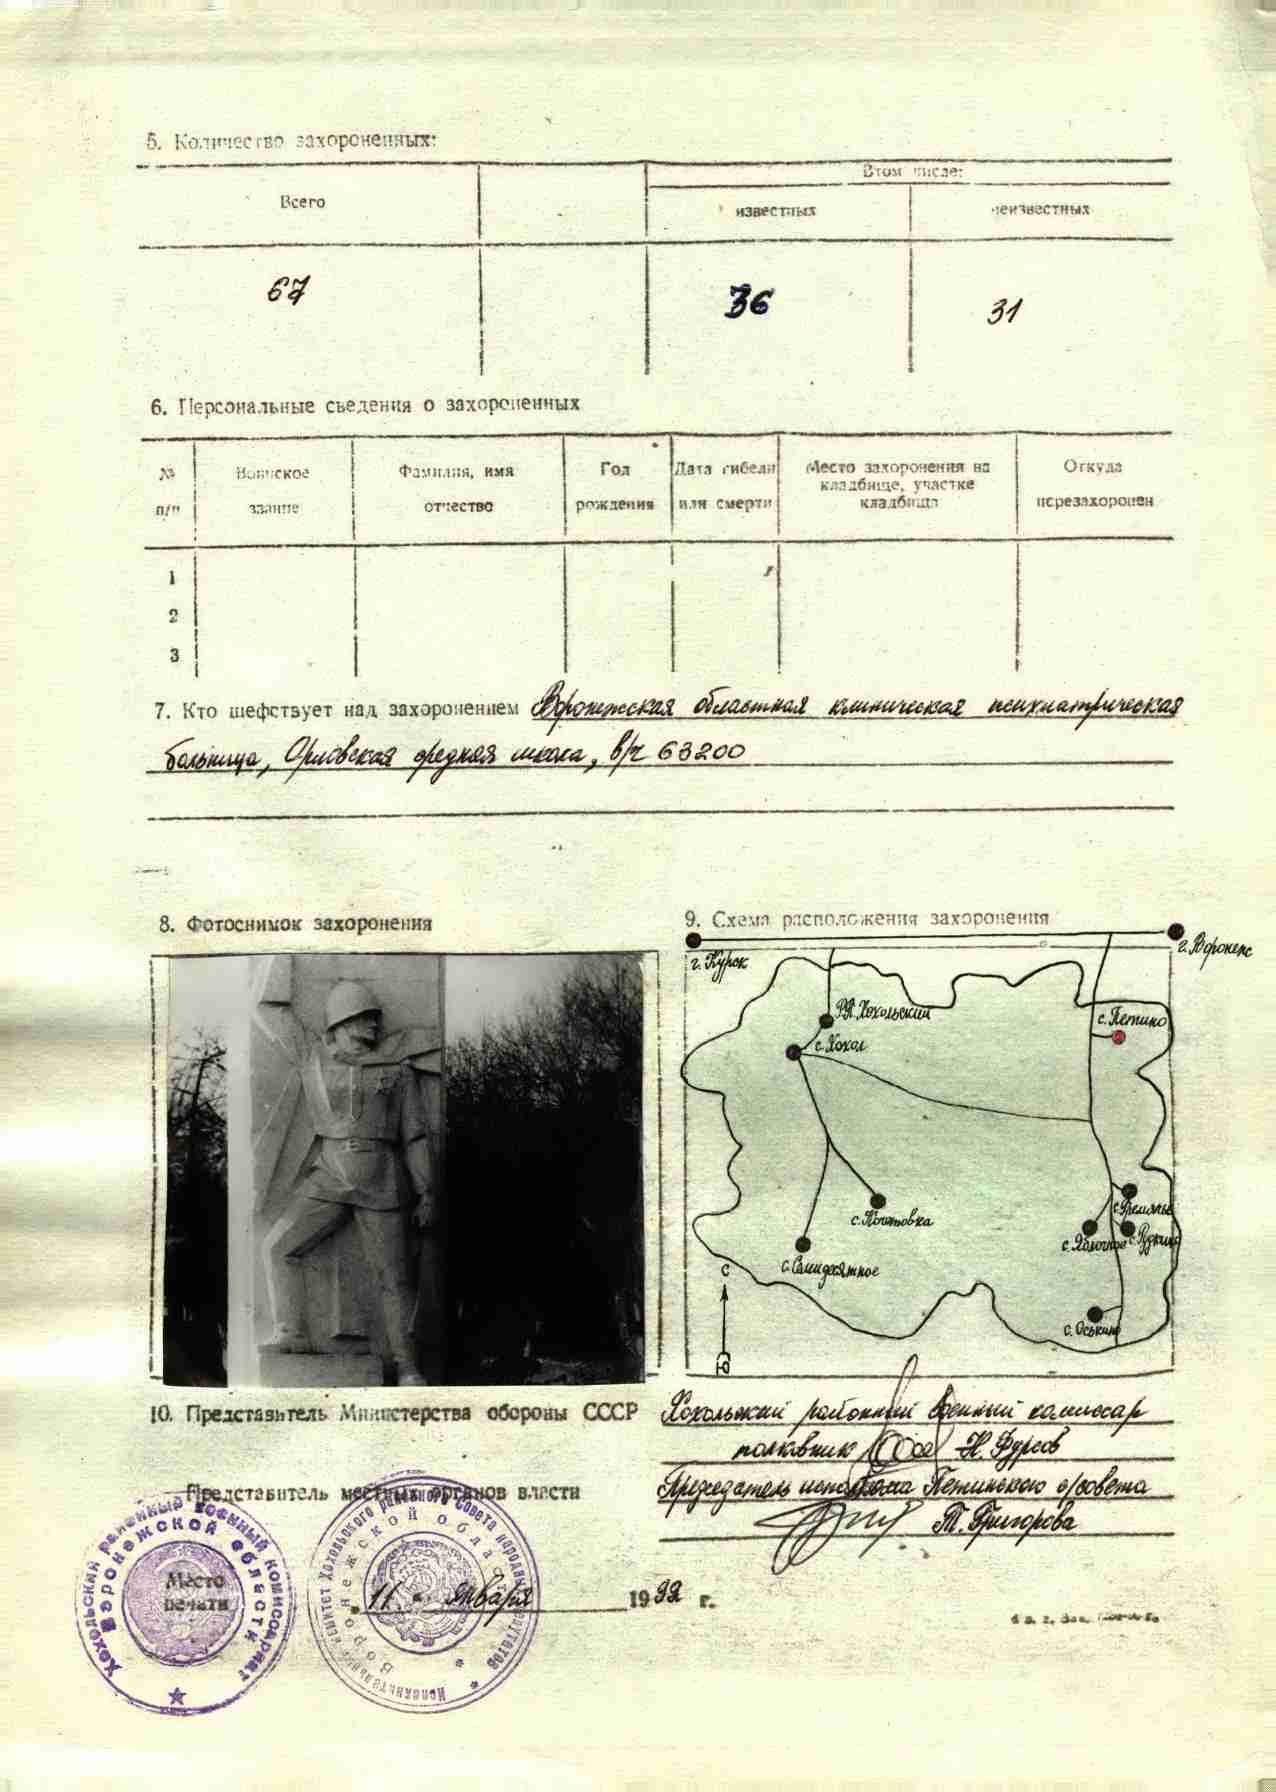 5. Количество захороненных:
Всего
Втом числе:
известных
неизвестных
67
36
31
6. Персональные сведения о захороненных
№ п/п
Воинское звание
Фамилия, имя отчество
Год рождения
Дата гибели или смерти
Место захоронения на кладбище, участке кладбища
Откуда перезахоронен
1
2
3
7. Кто шефствует над захоронением Воронежская областная клиническая психиатрическая
больница, Орловская средняя школа, в/ч 63200
8. Фотоснимок захоронения
9. Схема расположения захоронения
г. Курск
г. Воронеж
Р.П. Хохольский
с. Петино
с. Хохол
с. Гремячье
с. Кочетовка
с. Яблочное
с. Рудкино
с. Семидесятное
С
с. Оськино
Ю
10. Представитель Министерства обороны СССР Хохольский районный военный комиссар
полковник Н. Фурсов
Представитель местных органов власти Председатель исполкома Петинского с/совета
Т. Григорова
Хохольский районный военный комиссариат
Воронежской области
Место печати
Исполнительный комитет Хохольского районного Совета народных депутатов
Воронежской области
11 января 1992 г.